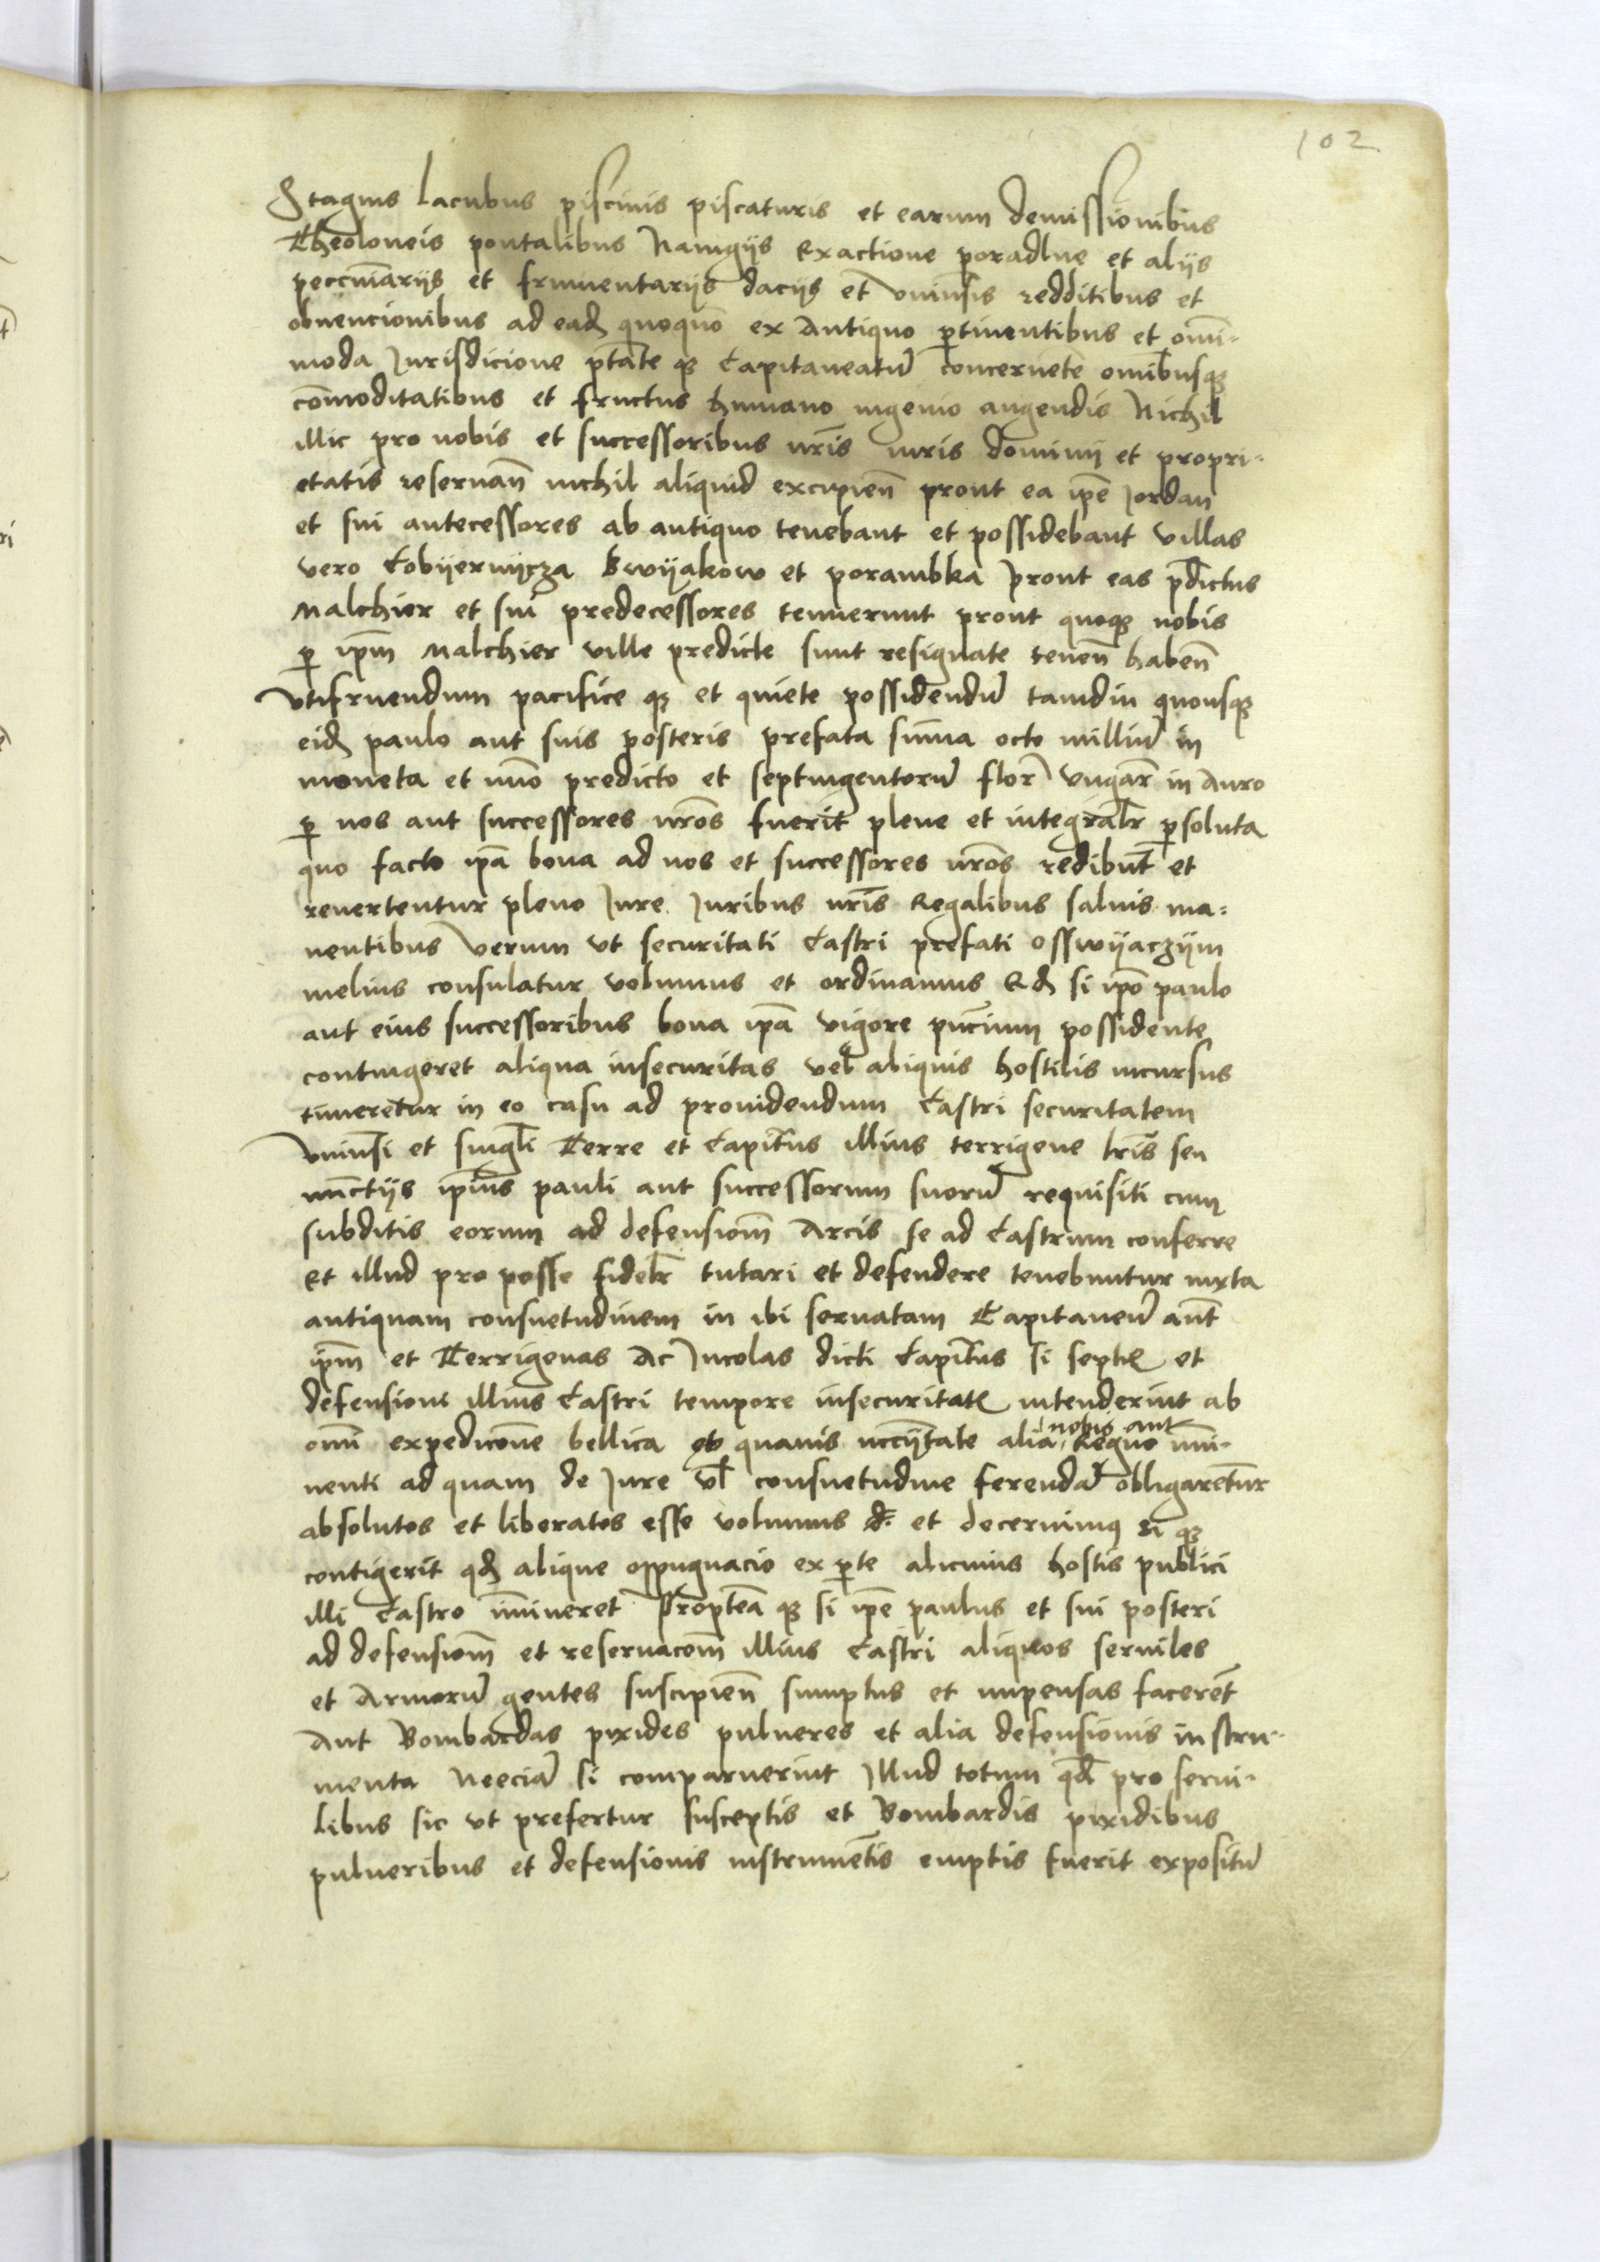 102
Stagnis lacubus piscinis piscaturis et earum demissionibus
Theoloneis pontalibus Nauigijs Exactione poradlne et alijs
peccuniarijs et frumentarijs dacijs et vniuersis redditibus et
obuencionibus ad ead quoquo ex Antiquo ptinentibus et omi-
moda Jurisdicione ptate q Capitaneatu concernete omibusq
commoditatibus et fructus humano ingenio augendis Nichil
illic pro nobis et successoribus nris iuris dominij et propri-
etatis reseruan nichil aliquid excipien prout ea ipe Jordan
et sui antecessores ab antiquo tenebant et possidebant villas
vero Cobyernyicza Bwyakow et porambka prout eas pdictus
Malchier et sui predecessores tenuerunt prout quoq nobis
p ipm Malchier ville predicte sunt resignate tenen haben
vtifruendum pacifice q et quiete possidendu tamdiu quousq
eid paulo aut suis posteris prefata suma octo milliu in
moneta et nuo predicto et septingentoru flor vngar in Auro
p nos aut successores nros fuerit plene et integralr psoluta
quo facto ipa bona ad nos et successores nros redibut et
reuertentur pleno Jure Juribus nris Regalibus saluis ma-
nentibus Verum vt securitati Castri prefati Osswyaczym
melius consulatur volumus et ordinamus Ed si ipo paulo
aut eius successoribus bona ipa vigore pncium possidente
contingeret aliqua insecuritas vel aliquis hostilis incursus
timeretur in eo casu ad prouidendum Castri securitatem
vniuersi et singli Terre et Capitus illius terrigene lris seu
nunctijs ipius pauli aut successorum suoru requisiti cum
subditis eorum ad defensiom Arcis se ad Castrum conferre
Et illud pro posse fidelr tutari et defendere tenebuntur iuxta
antiquam consuetudinem in ibi seruatam Capitaneu aut
ipm et Terrigenas Ac Jncolas dicti Capitus si septe et
defensioni illius Castri tempore insecuritate intenderint ab
omi expedicone bellica et quauis nccitate alia nobis aut Regno imi-
nenti ad quam de Jure vl consuetudine ferenda obligaretur
absolutos et liberatos esse volumus et decernimus si q
contigerit qd alique oppugnacio ex pte alicuius hostis publici
illi Castro imineret Proptea q si ipe paulus et sui posteri
ad defensiom et reseruacom illius Castri aliquos seruiles
et Armoru gentes suscipien sumptus et impensas faceret
Aut Bombardas pixides pulueres et alia defensionis instru-
menta Necia si comparuerint Jllud totum qd pro serui-
libus sic vt prefertur susceptis et Bombardis pixidibus
pulueribus et defensionis instrumetis emptis fuerit expositu